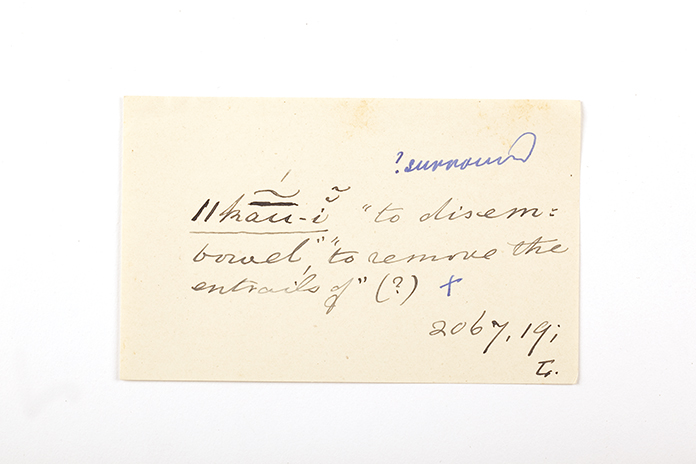 ? surround
ǁkа̄̃ŭ̃-ĭ̃ "to disem=
bowel," "to remove the
entrails of" (?) +
2067, 19;